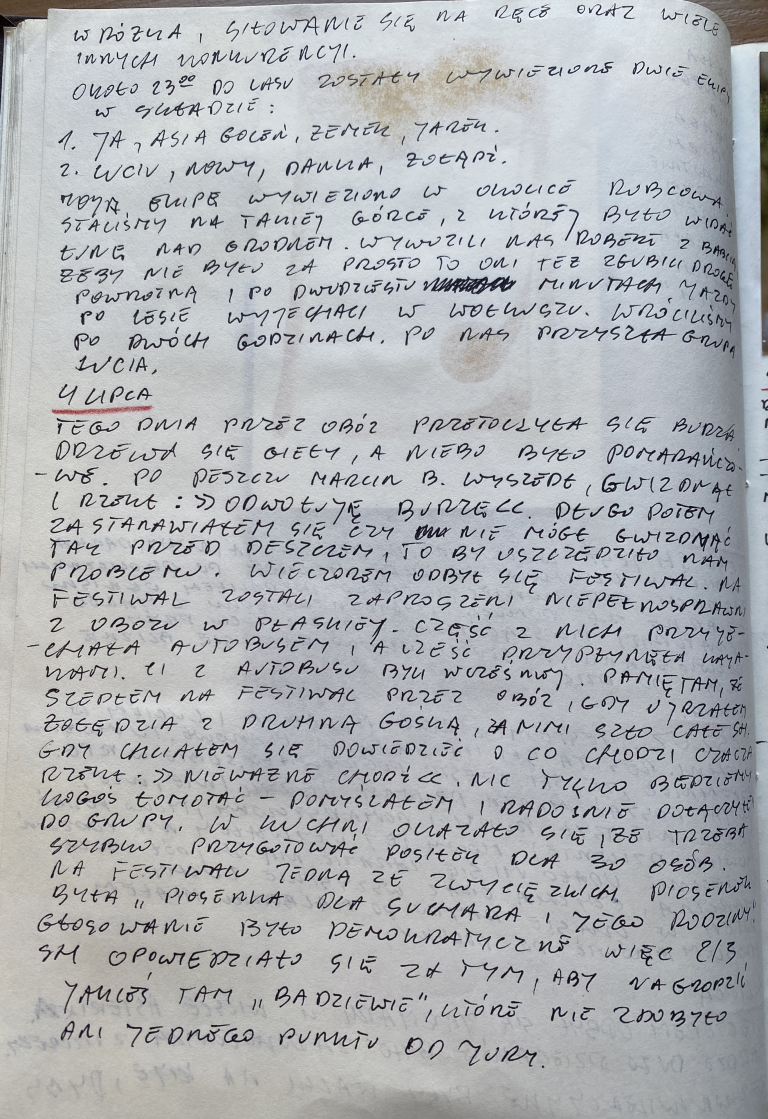 WRÓŻKA, SIŁOWANIE SIĘ NA RĘCE ORAZ WIELE
INNYCH KONKURENCJI.
OKOŁO 23⁰⁰ DO LASU ZOSTAŁY WYWIEZIONE DWIE EKIPY
W SKŁADZIE:
1. JA, ASIA GOLEŃ, ZEMEK, JAREK.
2. LUCIU, NOWY, DANKA, ŻOŁĄDŹ.
MOJĄ EKIPĘ WYWIEZIONO W OKOLICE RUBCOWA
STALIŚMY NA TAKIEJ GÓRCE, Z KTÓREJ BYŁO WIDAĆ
ŁUNĘ NAD GRODNEM. WYWOZILI NAS ROBERT Z BABCIĄ
ŻEBY NIE BYŁO ZA PROSTO TO ONI TEŻ ZGUBILI DROGĘ
POWROTNĄ I PO DWUDZIESTU MINUTACH JAZDY
PO LESIE WYJECHALI W WOŁKUSZU. WRÓCILIŚMY
PO DWÓCH GODZINACH. PO NAS PRZYSZŁA GRUPA
LUCIA.
4 LIPCA
TEGO DNIA PRZEZ OBÓZ PRZETOCZYŁA SIĘ BURZA
DRZEWA SIĘ GIEŁY, A NIEBO BYŁO POMARAŃCZO-
-WE. PO DESZCZU MARCIN B. WYSZEDŁ, GWIZDNĄŁ
I RZEKŁ: »ODWOŁUJĘ BURZĘ«. DŁUGO POTEM
ZASTANAWIAŁEM SIĘ CZY NIE MÓGŁ GWIZDNĄĆ
TAK PRZED DESZCZEM, TO BY USZCZĘDZIŁO NAM
PROBLEMU. WIECZOREM ODBYŁ SIĘ FESTIWAL. NA
FESTIWAL ZOSTALI ZAPROSZENI NIEPEŁNOSPRAWNI
Z OBOZU W PŁASKIEJ. CZĘŚĆ Z NICH PRZYJE-
-CHAŁA AUTOBUSEM, A CZEŚĆ PRZYPŁYNĘŁA KAJA-
KAMI. CI Z AUTOBUSU BYLI WCZEŚNIEJ. PAMIĘTAM, ŻE
SZEDŁEM NA FESTIWAL PRZEZ OBÓZ, GDY UJRZAŁEM
ŻOŁĘDZIA Z DRUHNĄ GOŚKĄ, ZA NIMI SZŁO CAŁE SH.
GDY CHCIAŁEM SIĘ DOWIEDZIEĆ O CO CHODZI CZACZA
RZEKŁ: »NIEWAŻNE CHODŹ«. NIC TYLKO BĘDZIEMY
KOGOŚ ŁOMOTAĆ – POMYŚLAŁEM I RADOŚNIE DOŁĄCZYŁEM
DO GRUPY. W KUCHNI OKAZAŁO SIĘ, ŻE TRZEBA
SZYBKO PRZYGOTOWAĆ POSIŁEK DLA 30 OSÓB.
NA FESTIWALU JEDNĄ ZE ZWYCIĘZKICH PIOSENEK
BYŁA „PIOSENKA DLA SUCHARA I JEGO RODZINY"
GŁOSOWANIE BYŁO DEMOKRATYCZNE WIĘC 2/3
SH OPOWIEDZIAŁO SIĘ ZA TYM, ABY NAGRODZIĆ
JAKIEŚ TAM „BADZIEWIE", KTÓRE NIE ZDOBYŁO
ANI JEDNEGO PUNKTU OD JURY.